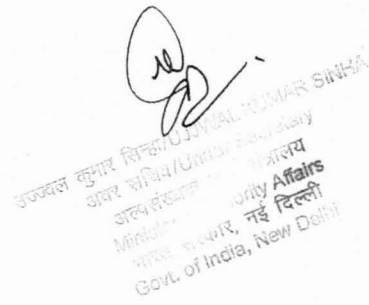 उज्जवल कुमार सिन्हा/UJJWAL KUMAR SINHA
अवर सचिव/Under Secretary
अल्पसंख्यक
Minority Affairs
भारत सरकार, नई दिल्ली
Govt. of India, New Delhi